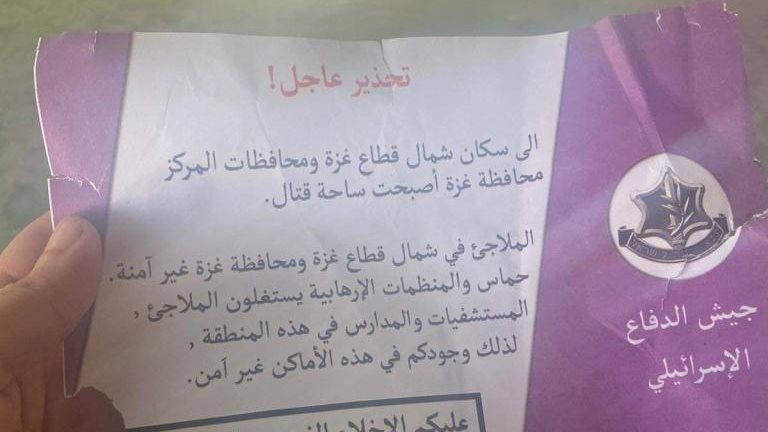 تحذير عاجل!
الى سكان شمال قطاع غزة ومحافظات المركز
محافظة غزة أصبحت ساحة قتال.
الملاجئ في شمال قطاع غزة ومحافظة غزة غير آمنة.
حماس والمنظمات الإرهابية يستغلون الملاجئ ,
المستشفيات والمدارس في هذه المنطقة ,
لذلك وجودكم في هذه الأماكن غير آمن.
عليكم الإخلاء
جيش الدفاع
الإسرائيلي